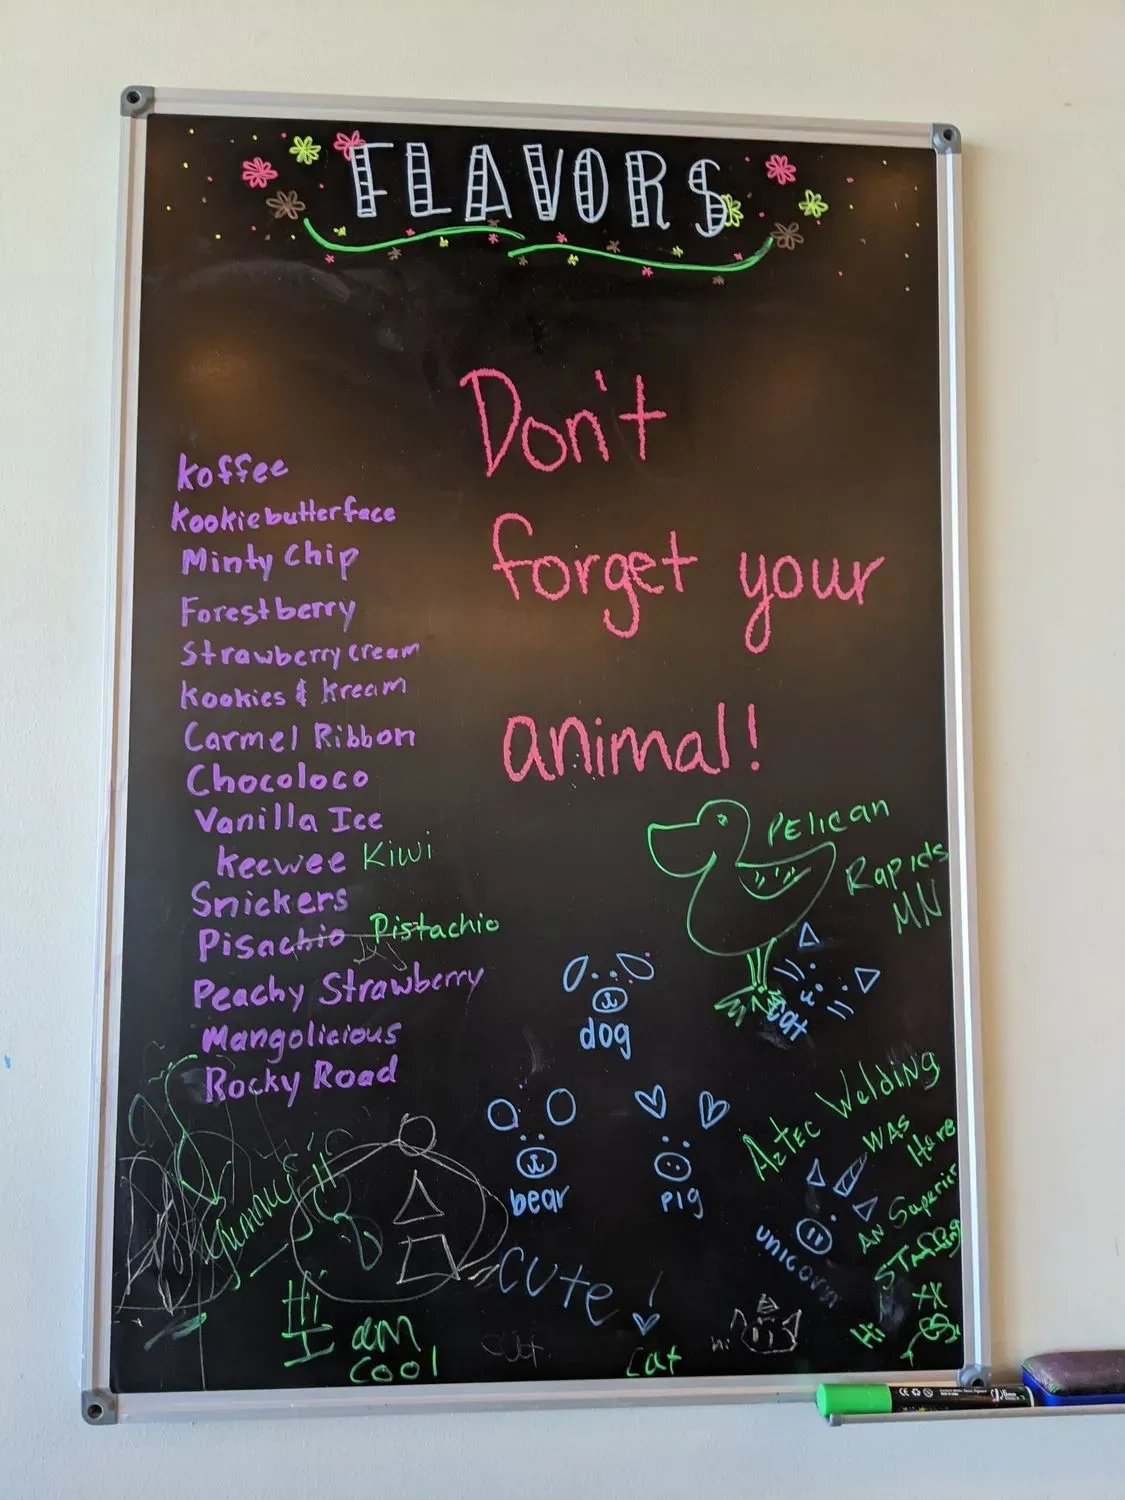 FLAVORS
Don't
forget your
animal!
Koffee
Kookiebutterface
Minty Chip
Forestberry
Strawberry cream
Kookies & Kream
Carmel Ribbon
Chocoloco
Vanilla Ice
Keewee Kiwi
Snickers
Pisachio Pistachio
Peachy Strawberry
Mangolicious
Rocky Road
PELican
Rapids
MN
dog
cat
bear
pig
unicorn
AzTEC Welding
WAS
Here
AN Superior
STAffing
XX
Hi
CUTe!
Hi
I am
cool
cat
cat
hi